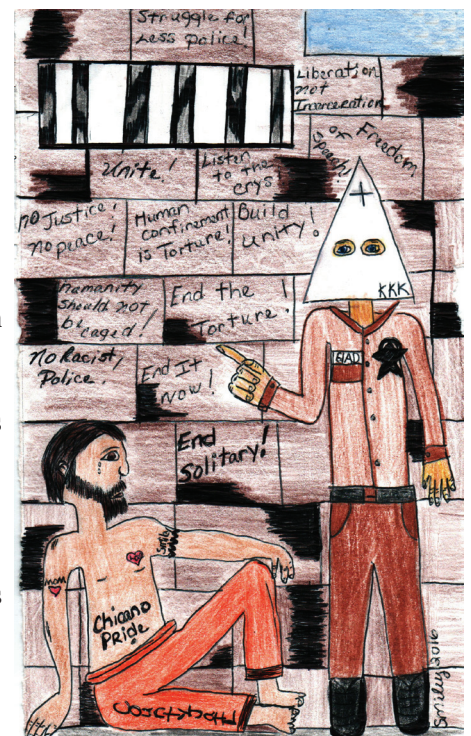 Struggle for
Less police!
Liberation
not
Incarceration
Unite!
Listen
to the
crys
Freedom
of
Speech!
no Justice,
no peace!
Human
confinement
is Torture!
Build
unity!
KKK
humanity
should not
be caged!
End the
Torture!
No Racist,
Police.
End It
Now!
End
Solitary!
mom
Chicano
Pride
Smiley 2016